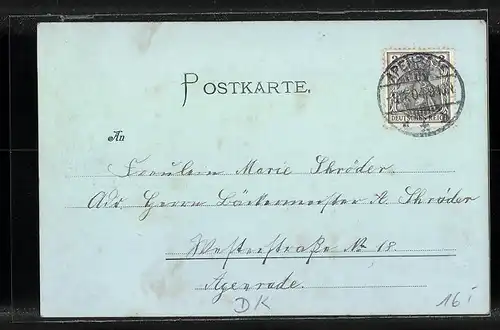 POSTKARTE.
APENRADE
DEUTSCHES REICH
An
Fräulein Marie Schröder
Adr. Herrn Bäckermeister A. Schröder
Westerstraße No 18.
Apenrade.
DK
16